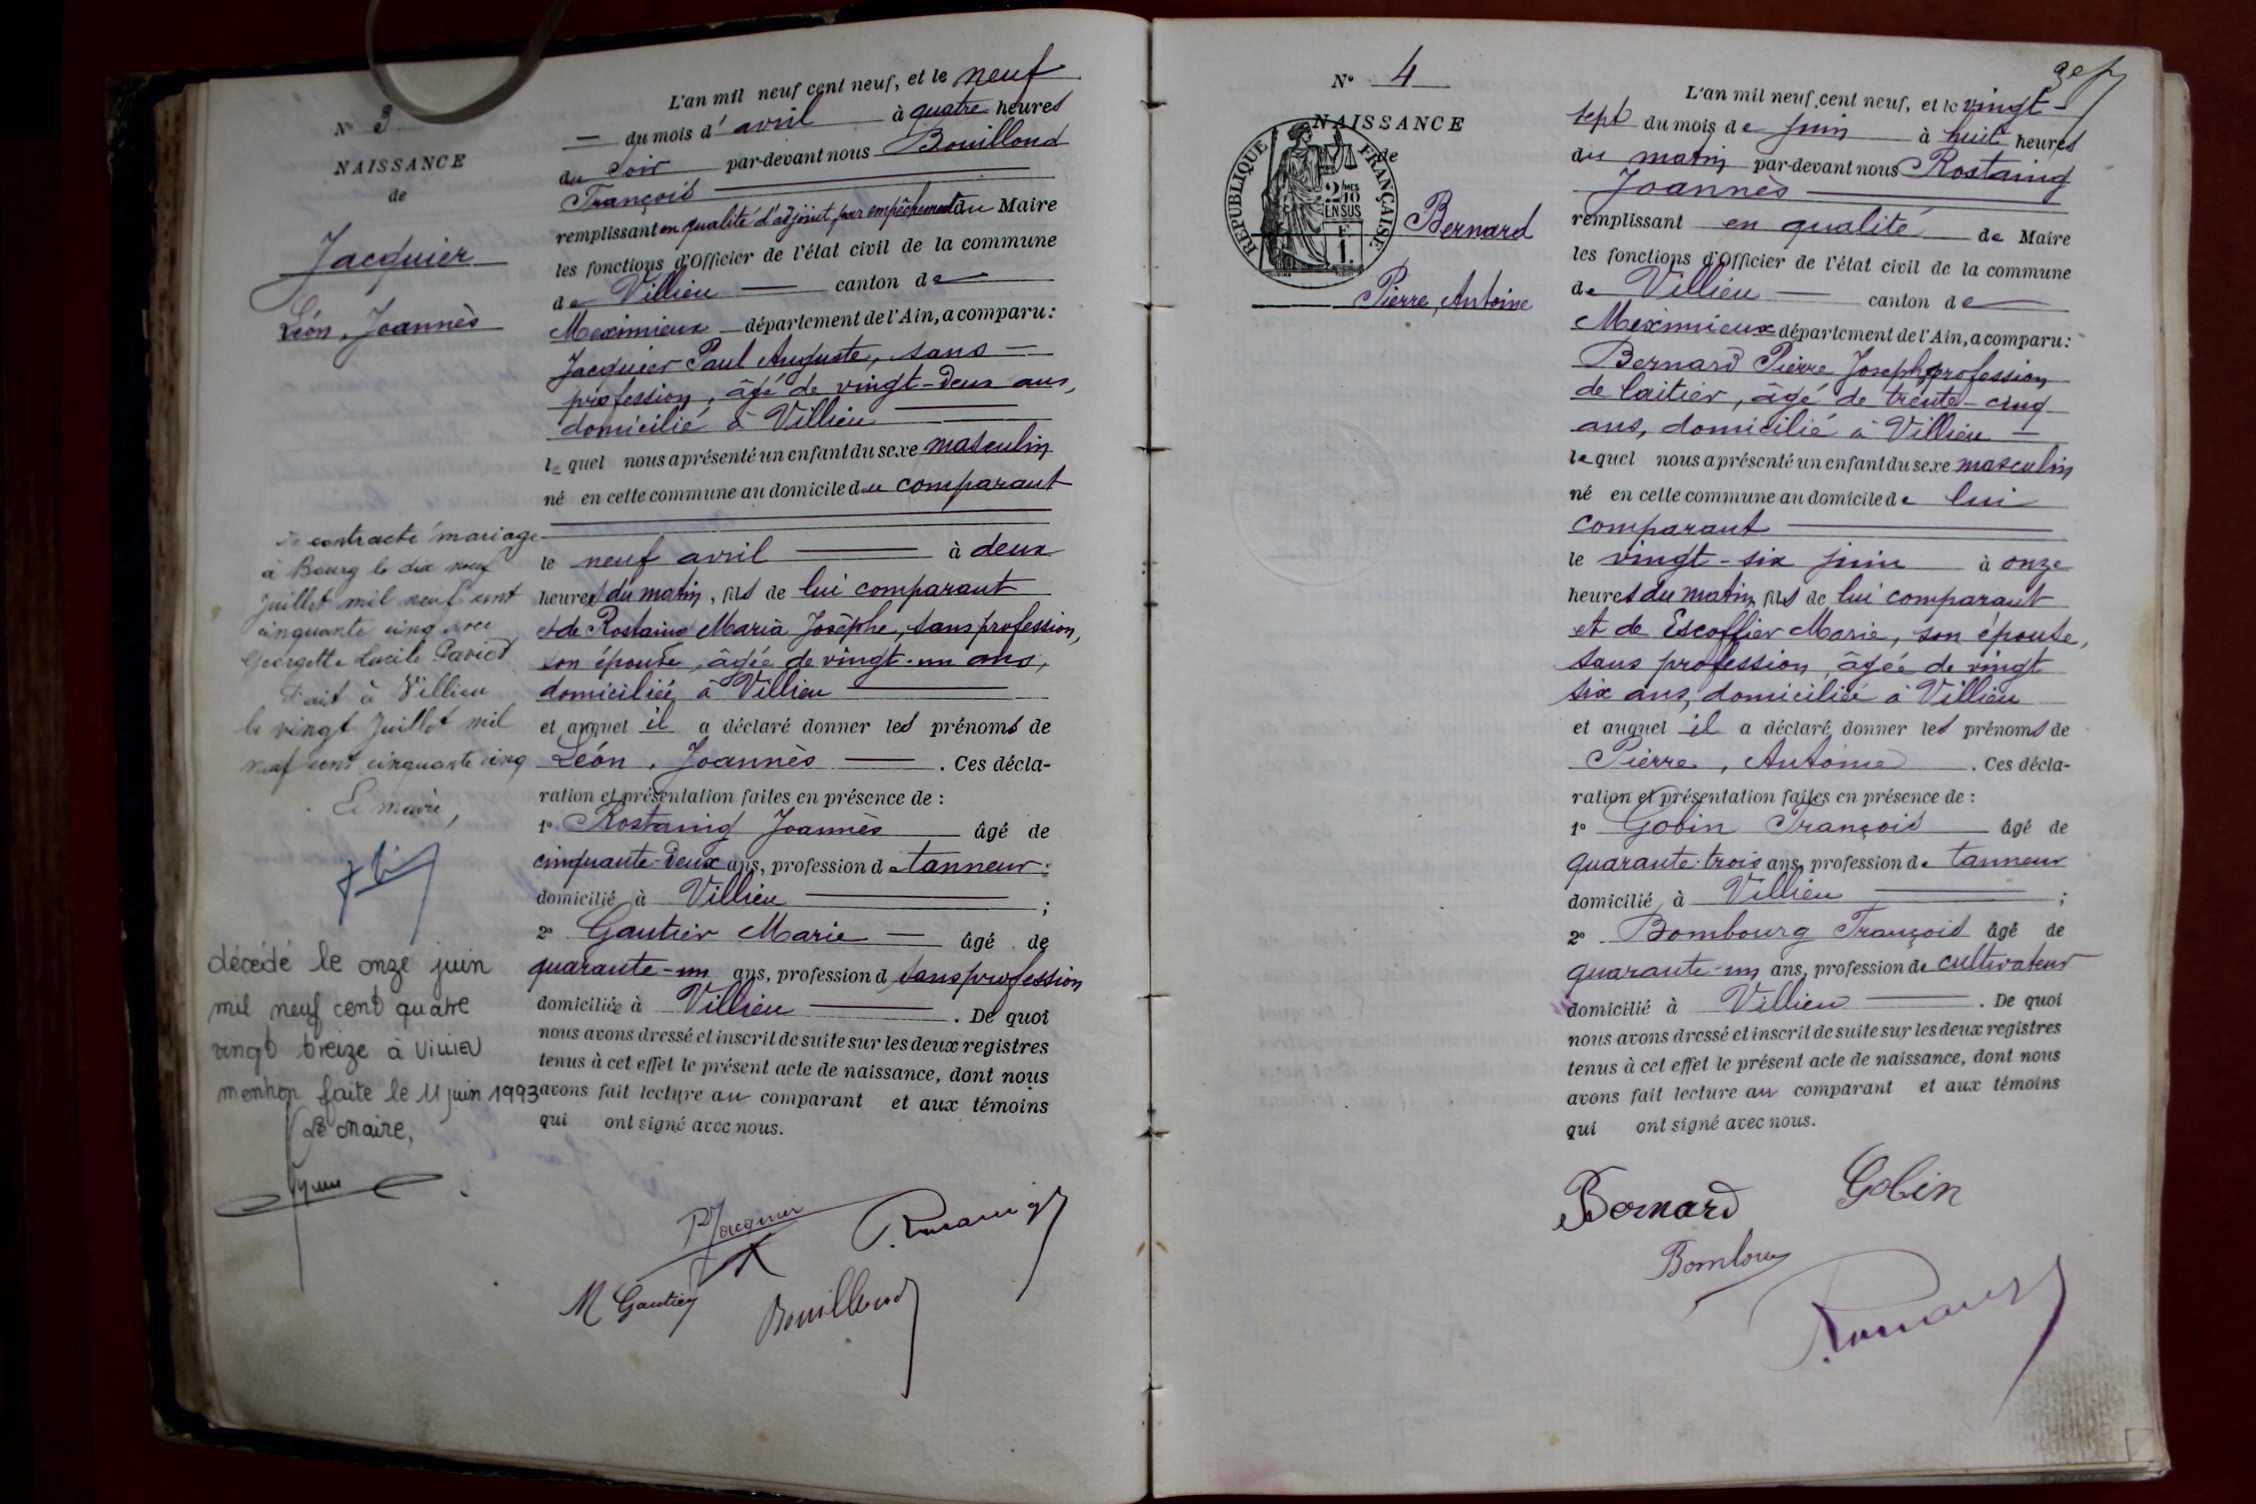 N° 3
NAISSANCE
de
Jacquier
Léon, Joannès
L'an mil neuf cent neuf, et le neuf
— du mois d'avril à quatre heures
du soir par-devant nous Bouilloud
François
remplissant en qualité d'adjoint par empêchement du Maire
les fonctions d'Officier de l'état civil de la commune
de Villieu — canton de
Meximieux département de l'Ain, a comparu:
Jacquier Paul Auguste, sans
profession, âgé de vingt-deux ans,
domicilié à Villieu
lequel nous a présenté un enfant du sexe masculin
né en cette commune au domicile du comparant
le neuf avril — à deux
heures du matin, fils de lui comparant
et de Rostaing Maria Josèphe, sans profession,
son épouse, âgée de vingt-un ans,
domiciliée à Villieu
et auquel il a déclaré donner les prénoms de
Léon, Joannès — . Ces décla-
ration et présentation faites en présence de :
1° Rostaing Joannès âgé de
cinquante-deux ans, profession de tanneur
domicilié à Villieu ;
2° Gautier Marie — âgé de
quarante-un ans, profession d sans profession
domiciliée à Villieu . De quoi
nous avons dressé et inscrit de suite sur les deux registres
tenus à cet effet le présent acte de naissance, dont nous
avons fait lecture au comparant et aux témoins
qui ont signé avec nous.
contracté mariage
à Bourg le dix neuf
Juillet mil neuf cent
cinquante cinq avec
Georgette Lucile
Fait à Villieu
le vingt Juillet mil
neuf cent cinquante cinq
Le maire,
décédé le onze juin
mil neuf cent quatre
vingt treize à VILLIEU
mention faite le 11 juin 1993
Le Maire,
P Jacquier
Rostaing
M Gautier
Bouilloud
N° 4
NAISSANCE
de
RÉPUBLIQUE FRANÇAISE
2/10
EN SUS
Bernard
Pierre, Antoine
L'an mil neuf cent neuf, et le vingt-
sept du mois de juin à huit heures
du matin par-devant nous Rostaing
Joannès
remplissant en qualité de Maire
les fonctions d'Officier de l'état civil de la commune
de Villieu — canton de
Meximieux département de l'Ain, a comparu:
Bernard Pierre Joseph, profession
de laitier, âgé de trente-cinq
ans, domicilié à Villieu —
lequel nous a présenté un enfant du sexe masculin
né en cette commune au domicile de lui
comparant
le vingt-six juin à onze
heures du matin, fils de lui comparant
et de Escoffier Marie, son épouse,
sans profession, âgée de vingt
six ans, domiciliée à Villieu
et auquel il a déclaré donner les prénoms de
Pierre, Antoine . Ces décla-
ration et présentation faites en présence de :
1° Gobin François âgé de
quarante-trois ans, profession de tanneur
domicilié à Villieu ;
2° Bombourg François âgé de
quarante-un ans, profession de cultivateur
domicilié à Villieu . De quoi
nous avons dressé et inscrit de suite sur les deux registres
tenus à cet effet le présent acte de naissance, dont nous
avons fait lecture au comparant et aux témoins
qui ont signé avec nous.
Bernard
Gobin
Bombourg
Rostaing